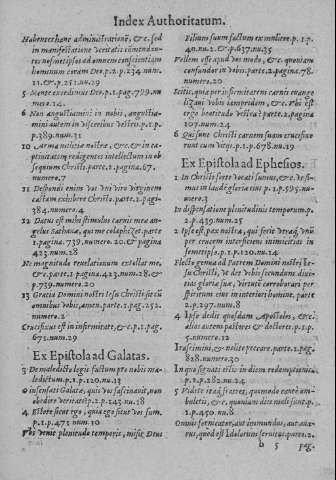 Index Authoritatum.
Habentes hanc administrationẽ, &c. sed
in manifestatione veritatis cõmendan-
tes nosmetipsos ad omnem conscientiam
hominum coram Deo. p.2. p.234. num.
11. & p.251. nu.29
5 Mente excedimus Deo. p.1. pag.799. nu
mero.14.
6 Non angustiamini in nobis, angustia-
mini autem in visceribus vestris. p.1. p.
p.389. num.31
10 Arma militiæ nostræ, &c. & in ca-
ptiuitatem redigentes intellectum in ob
sequium Christi. parte.2. pagina.67.
numero.7
11 Despondi enim vos vni viro virginem
castam exhibere Christo. parte.2. pagi-
384. numero.4
22 Datus est mihi stimulus carnis meæ an-
gelus Sathanæ, qui me colaphizet. parte
1. pagina.739. numero.20. & pagina
423. num.28
Ne magnitudo reuelationum extollat me,
&c. parte.1. pagina.423. num.28. & p.
p.739. numero.20
13 Gratia Domini nostri Iesu Christi sit cũ
omnibus vobis, amen. parte.1. pag.252.
numero.2
Crucifixus est in infirmitate, &c. p.1. pag.
671. num.29
Ex Epistola ad Galatas.
3 De maledicto legis factum pro nobis ma-
ledictum. p.1. p.120. nu.13
O insensati Galatæ, quis vos fascinauit, non
obedire veritati? p.2. p.143. nu.18
4 Estote sicut ego, quia ego sicut vos sum.
p.1. p.471. num.10
Vbi venit plenitudo temporis, misit Deus
Filium suum factum ex muliere. p.1. p.
40. nu.2. & p.637. nu.35
Vellem esse apud vos modo, &c. quoniam
confundor in vobis. parte.2. pagina.78.
numero.20
Scitis, quia per infirmitatem carnis euange
lizaui vobis iampridem, &c. Vbi est
ergo beatitudo vestra? parte.2. pagina
109. num.24
6 Qui sunt Christi carnem suam crucifixe
runt cum vitijs. p.1. p.678. nu.19
Ex Epistola ad Ephesios.
1 In Christo sorte vocati sumus, &c. vt si-
mus in laudẽ gloriæ eius. p.1. p.595. nu-
mero.3
In dispensatione plenitudinis temporum. p.
2. p.439. num.25
2 Ipse est pax nostra, qui fecit vtraq; vnũ
per crucem interficiens inimicitias in
semetipso. p.1. p.120. nu.14
Flecto genua ad Patrem Domini nostri Ie-
su Christi, vt det vobis secundum diui-
tias gloriæ suæ, virtute corroborari per
spiritum eius in interiori homine. parte
2. p.297. num.8
4 Ipse dedit quosdam Apostolos, &c.
alios autem pastores & doctores. p.1. p.
5. numero.12
Irascimini, & nolite peccare. parte.1. pag.
828. numero.30
In quo signati estis in diem redemptionis.
p.2. p.282. nu.24
5 Videte itaq; fratres, quomodo cautè am-
buletis, &c. quoniam dies mali sunt. p.
2. p.450. nu.8
Omnis fornicator, aut immundus, aut aua-
rus, quod est Idolorum seruitus. parte.2.
b 5 pag.